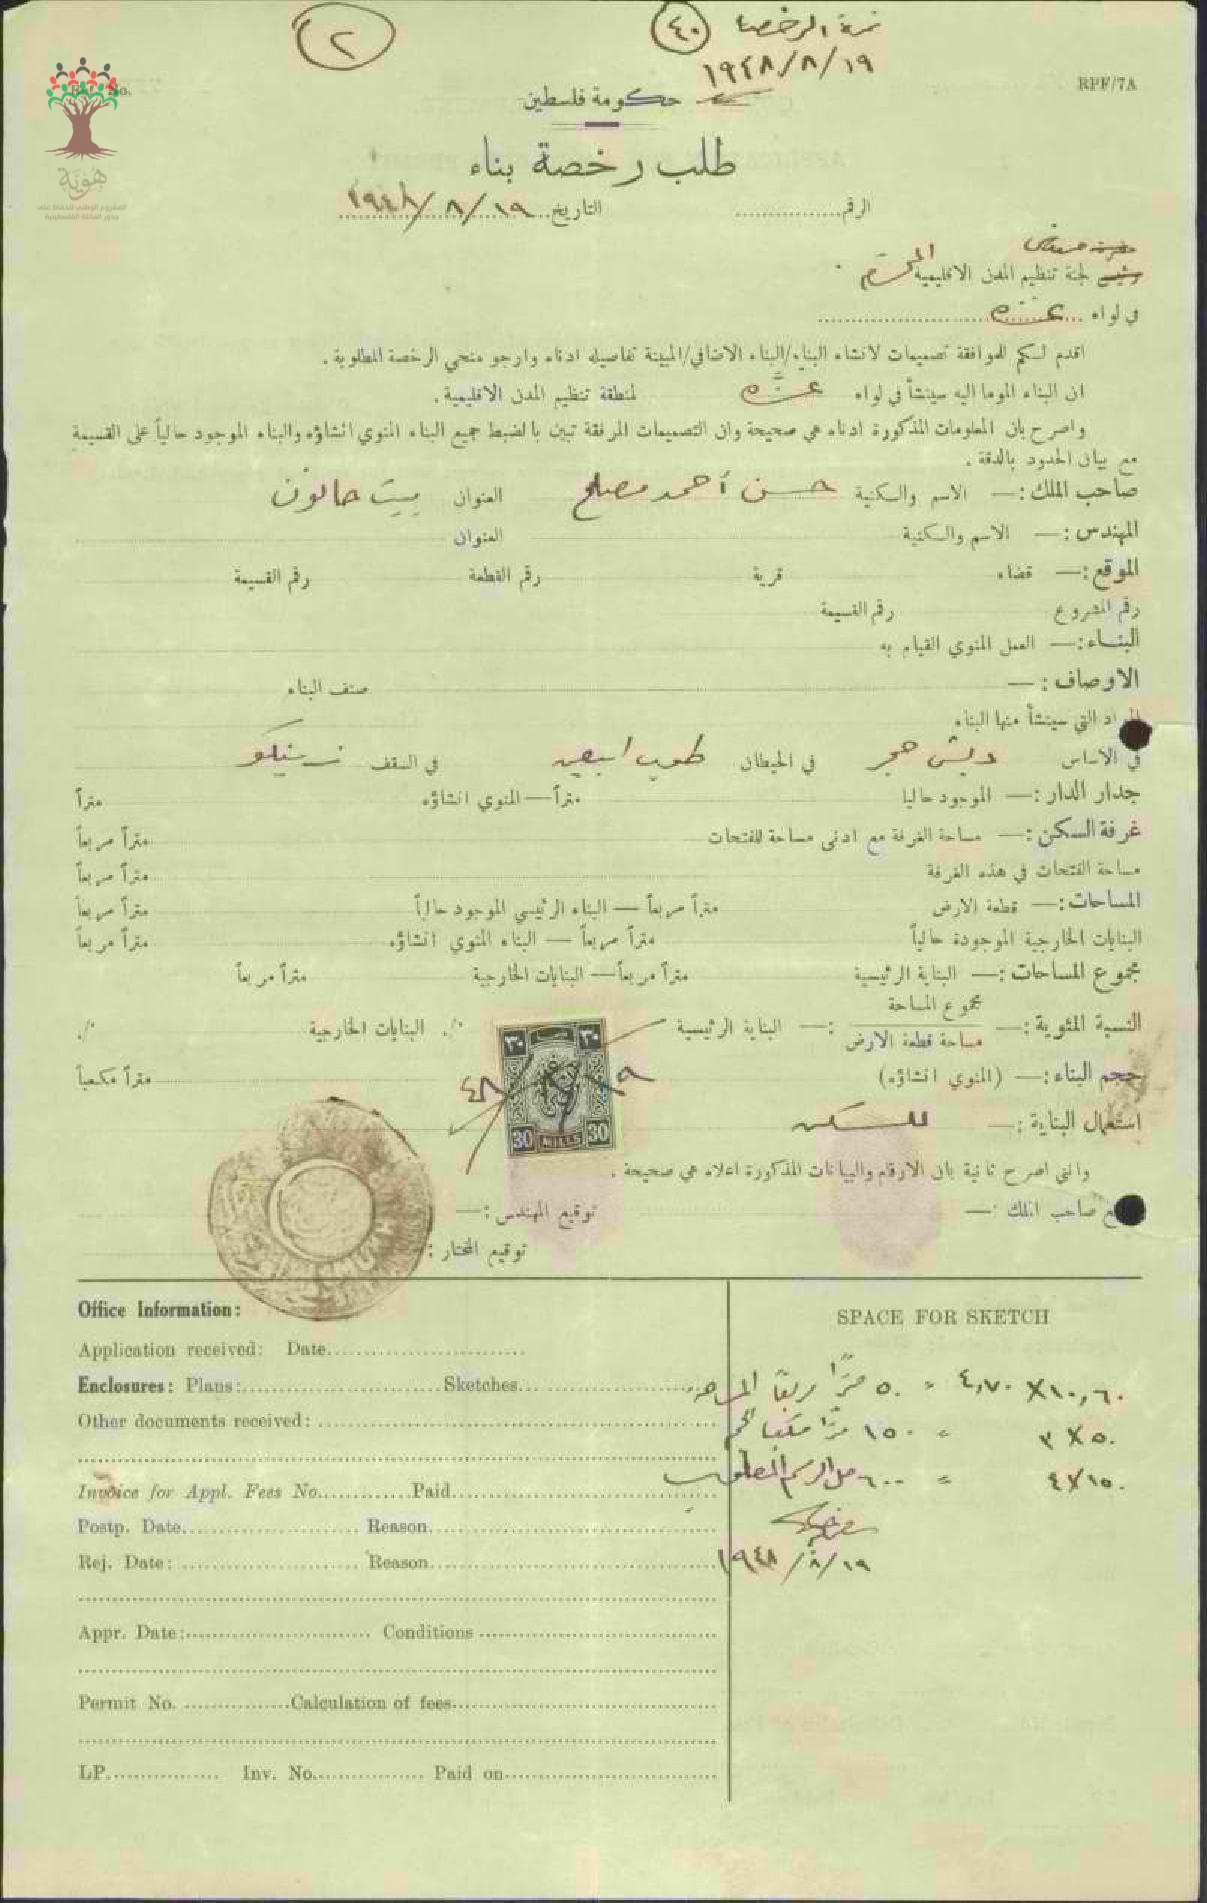 ٢
نمرة الرخصة ٤٠
١٩٤٨/٨/١٩
RPF/7A
هوية
المشروع الوطني للحفاظ على
جذور العائلة الفلسطينية
حكومة فلسطين
طلب رخصة بناء
الرقم................ التاريخ ١٩٤٨/٨/١٩
لجنة تنظيم المدن الاقليمية المحترم
في لواء غزه
اقدم لكم للموافقة تصميمات لانشاء البناء/البناء الاضافي/المبينة تفاصيله ادناه وارجو منحي الرخصة المطلوبة .
ان البناء الموما اليه سينشأ في لواء غزه لمنطقة تنظيم المدن الاقليمية .
واصرح بان المعلومات المذكورة ادناه هي صحيحة وان التصميمات المرفقة تبين بالضبط جميع البناء المنوي انشاؤه والبناء الموجود حالياً على القسيمة
مع بيان الحدود بالدقة .
صاحب الملك :— الاسم والكنية حسن أحمد مصلح العنوان بيت حانون
المهندس :— الاسم والكنية العنوان
الموقع :— قضاء قرية رقم القطعة رقم القسيمة
رقم المشروع رقم القسيمة
البناء :— العمل المنوي القيام به
الاوصاف :— صنف البناء
المواد التي سينشأ منها البناء
في الاساس دبش حجر في الحيطان طوب ابيض في السقف زينكو
جدار الدار :— الموجود حاليا متراً — المنوي انشاؤه متراً
غرفة السكن :— مساحة الغرفة مع ادنى مساحة للفتحات متراً مربعاً
مساحة الفتحات في هذه الغرفة متراً مربعاً
المساحات :— قطعة الارض متراً مربعاً — البناء الرئيسي الموجود حالياً متراً مربعاً
البنايات الخارجية الموجودة حالياً متراً مربعاً — البناء المنوي انشاؤه متراً مربعاً
مجموع المساحات :— البناية الرئيسية متراً مربعاً — البنايات الخارجية متراً مربعاً
مجموع المساحة
النسبة المئوية :— مساحة قطعة الارض :— البناية الرئيسية ./· البنايات الخارجية ./·
٣٠ ٣٠
30 MILLS 30
١٩/٨/٤٨
حجم البناء :— (المنوي انشاؤه) متراً مكعباً
استعمال البناية :— للسكن
وانني اصرح ثانية بان الارقام والبيانات المذكورة اعلاه هي صحيحة .
صاحب الملك :— توقيع المهندس :—
توقيع المختار :
Office Information:
Application received: Date
Enclosures: Plans: Sketches
Other documents received:
Invoice for Appl. Fees No. Paid
Postp. Date Reason
Rej. Date: Reason
Appr. Date: Conditions
Permit No. Calculation of fees
LP. Inv. No. Paid on
SPACE FOR SKETCH
١٠,٦٠ × ٤,٧٠ = ٥٠ متراً مربعاً المساحة
٥٠ × ٣ = ١٥٠ متراً مكعباً الحجم
١٥٠ × ٤ = ٦٠٠ مل الرسم المطلوب
١٩٤٨/٨/١٩